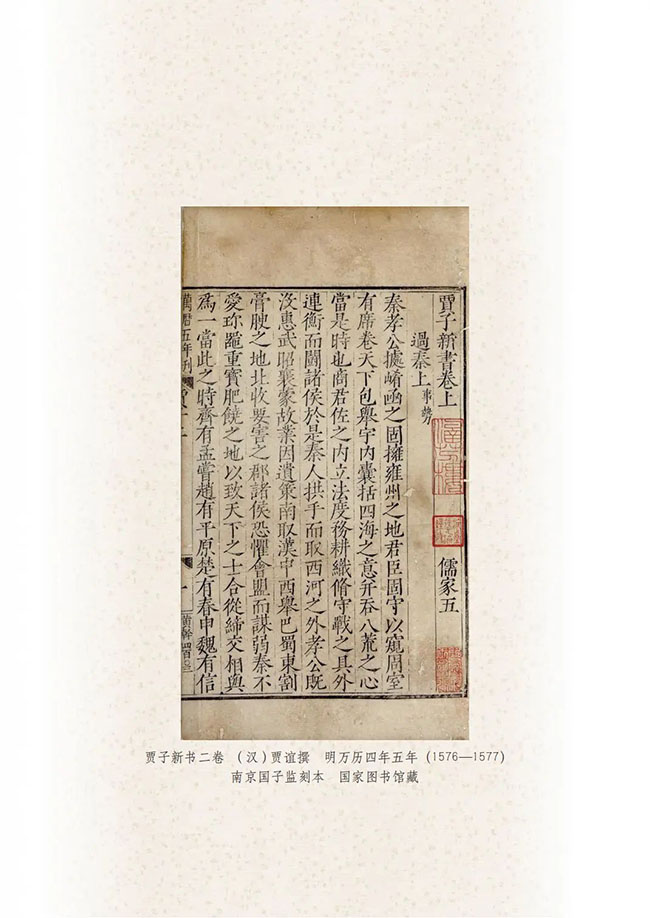 賈子新書卷上
儒家五
過秦上 事勢
秦孝公據崤函之固擁雍州之地君臣固守以窺周室
有席卷天下包舉宇內囊括四海之意并吞八荒之心
當是時也商君佐之內立法度務耕織脩守戰之具外
連衡而鬬諸侯於是秦人拱手而取西河之外孝公既
沒惠武昭襄蒙故業因遺策南取漢中西舉巴蜀東割
膏腴之地北收要害之郡諸侯恐懼會盟而謀弱秦不
愛珍噐重寶肥饒之地以致天下之士合從締交相與
爲一當此之時齊有孟嘗趙有平原楚有春申魏有信
萬曆五年刊
贾子新书二卷 （汉）贾谊撰 明万历四年五年（1576—1577）
南京国子监刻本 国家图书馆藏